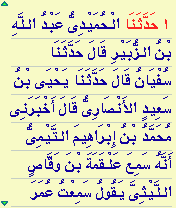 ١ حَدَّثَنَا الْحُمَيْدِىُّ عَبْدُ اللَّهِ
بْنُ الزُّبَيْرِ قَالَ حَدَّثَنَا
سُفْيَانُ قَالَ حَدَّثَنَا يَحْيَى بْنُ
سَعِيدٍ الأَنْصَارِىُّ قَالَ أَخْبَرَنِى
مُحَمَّدُ بْنُ إِبْرَاهِيمَ التَّيْمِىُّ
أَنَّهُ سَمِعَ عَلْقَمَةَ بْنَ وَقَّاصٍ
اللَّيْثِىَّ يَقُولُ سَمِعْتُ عُمَرَ